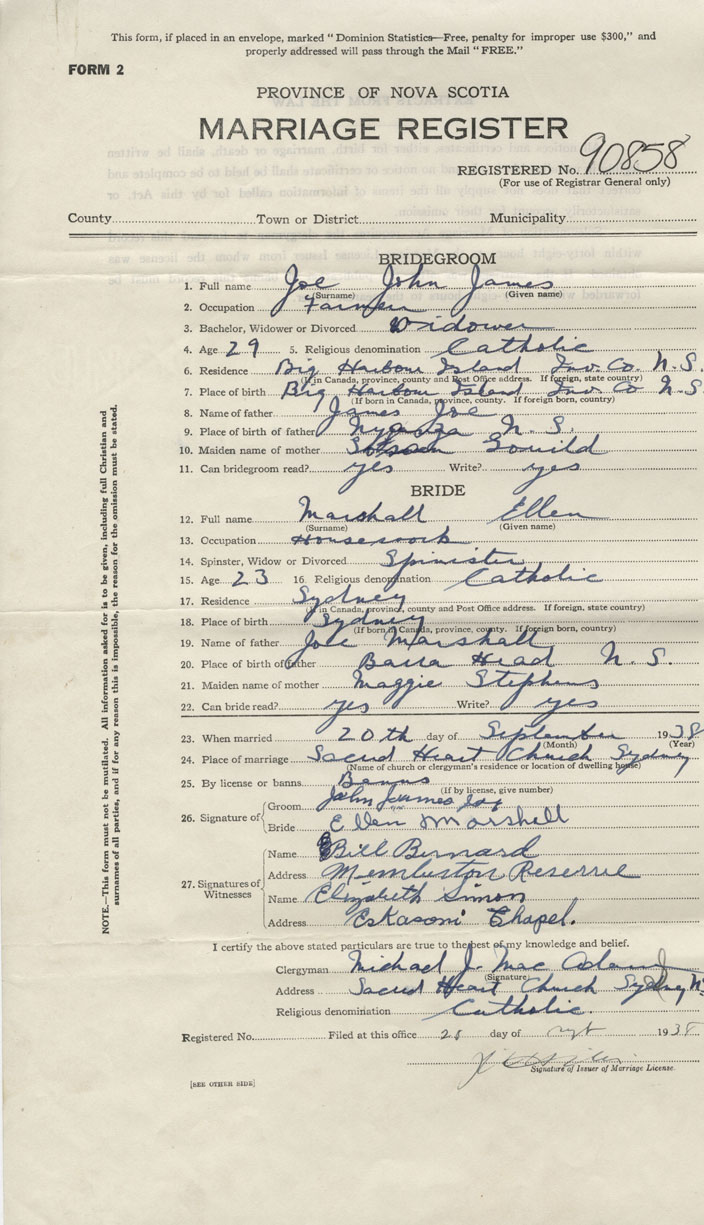 This form, if placed in an envelope, marked "Dominion Statistics—Free, penalty for improper use $300," and
properly addressed will pass through the Mail "FREE."
FORM 2
PROVINCE OF NOVA SCOTIA
MARRIAGE REGISTER
REGISTERED No. 90858
(For use of Registrar General only)
County Town or District Municipality
BRIDEGROOM
1. Full name Joe John James
(Surname) (Given name)
2. Occupation Farmer
3. Bachelor, Widower or Divorced Widower
4. Age 29 5. Religious denomination Catholic
6. Residence Big Harbour Island Inv. Co. N.S.
(If in Canada, province, county and Post Office address. If foreign, state country)
7. Place of birth Big Harbour Island Inv Co N.S
(If born in Canada, province, county. If foreign born, country)
8. Name of father James Joe
9. Place of birth of father Nyanza N.S.
10. Maiden name of mother Gouild
11. Can bridegroom read? yes Write? yes
BRIDE
12. Full name Marshall Ellen
(Surname) (Given name)
13. Occupation Housework
14. Spinster, Widow or Divorced Spinister
15. Age 23 16. Religious denomination Catholic
17. Residence Sydney
(If in Canada, province, county and Post Office address. If foreign, state country)
18. Place of birth Sydney
(If born in Canada, province, county. If foreign born, country)
19. Name of father Joe Marshall
20. Place of birth of father Barra Head N.S.
21. Maiden name of mother Maggie Stephens
22. Can bride read? yes Write? yes
23. When married 20th day of September 1938
(Month) (Year)
24. Place of marriage Sacred Heart Church Sydney
(Name of church or clergyman's residence or location of dwelling house)
25. By license or banns Banns
(If by license, give number)
26. Signature of
Groom John James Joe
Bride Ellen Marshall
27. Signatures of Witnesses
Name Bill Bernard
Address Membertou Reserve
Name Elizabeth Simon
Address Eskasoni Chapel.
I certify the above stated particulars are true to the best of my knowledge and belief.
Clergyman Michael J. Mac Adam
(Signature)
Address Sacred Heart Church Sydney N
Religious denomination Catholic.
Registered No. Filed at this office day of 1938
Signature of Issuer of Marriage License.
[SEE OTHER SIDE]
NOTE.—This form must not be mutilated. All information asked for is to be given, including full Christian and
surnames of all parties, and if for any reason this is impossible, the reason for the omission must be stated.